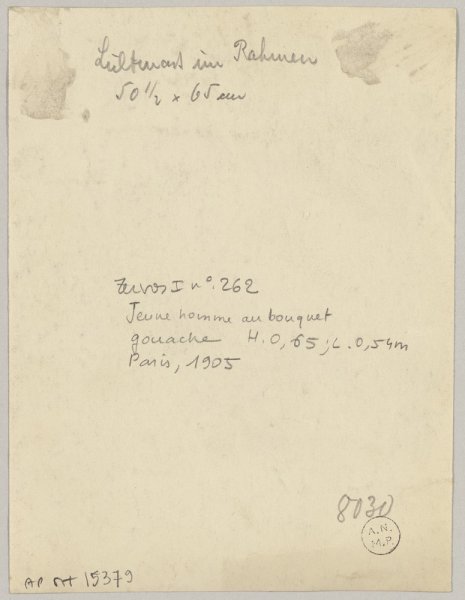 Lichtmast im Rahmen
50 1/2 x 65 cm
Zervos I n°. 262
Jeune homme au bouquet
gouache H. 0,65 ; L. 0,54m
Paris, 1905
8030
A.N.
M.P.
AP PH 15379